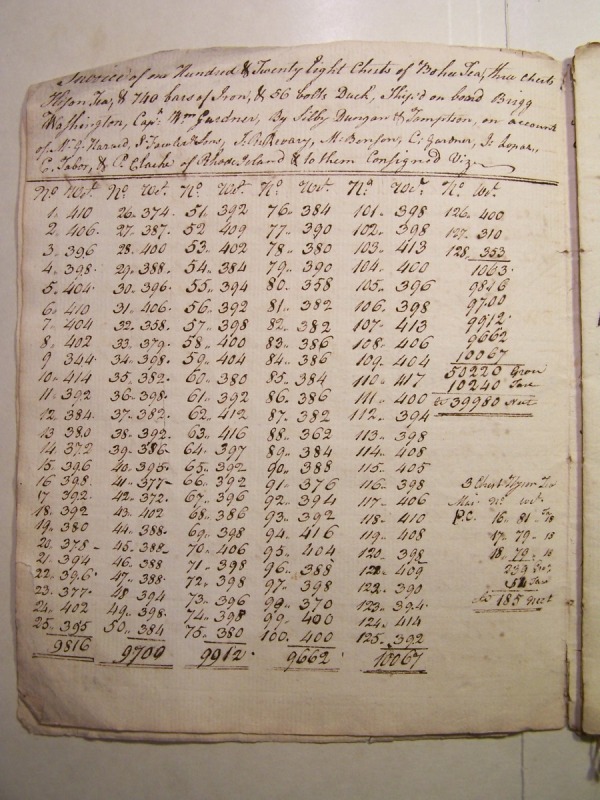 Invoice of one Hundred & Twenty Eight Chests of Bohea Tea, three Chests
Hyson Tea, & 740 bars of Iron, & 56 bolts Duck, Ship'd on board Brigg
Washington, Capn. Wm Gardner, By Silby Dungan & Tamption, on account
of Mr. J. Harrod, J. Fowler & Sons, M. Benson, C. Gardner, J. Lopaz,
C. Tabor, & P. Clarke of Rhode Island & to them Consigned Vizn
No. Wet. No. Wet. No. Wet. No. Wet. No. Wet. No. Wt.
1. 410 26. 374. 51. 392 76. 384 101. 398 126. 400
2. 406. 27. 387. 52 409 77. 390 102. 398 127. 310
3. 396 28. 400 53. 402 78. 380 103. 413 128. 353
4. 398. 29. 388. 54. 384 79. 390 104. 400 1063.
5. 404. 30. 396. 55. 394 80. 358 105. 396 9816
6. 410 31. 406. 56. 392 81. 382 106. 398 9700
7. 404 32. 358. 57. 398 82. 382 107. 413 9912.
8. 402 33. 379. 58. 400 83. 386 108. 406 9662
9. 344 34. 398. 59. 404 84. 386 109. 404 10067
10. 414 35. 382. 60. 380 85. 384 110. 417 50220 Gross
11. 392 36. 398. 61. 392 86. 386 111. 400 10240 Tare
12. 384. 37. 382. 62. 412 87. 382 112. 394 39980 Nett
13 380 38. 392. 63. 416 88. 362 113. 398
14. 372 39. 386 64. 397 89. 384 114. 408
15. 396 40. 395. 65. 392 90. 388 115. 405
16. 398. 41. 377 66. 392 91. 376 116. 398 3 Chests Hyson Tea
17. 392. 42. 372. 67. 396 92. 394 117. 406 Mar. No. Wt.
18. 392 43. 402 68. 386 93. 392 118. 410 P.C. 16. 81 Ta 18
19. 380 44. 388. 69. 398 94. 416 119. 408 17. 79. 18
20. 378 45. 388 70. 406 95. 404 120. 398 18. 79. 18
21. 394 46. 388 71. 398 96. 388 121. 409 239 Gro
22. 396. 47. 388. 72. 398 97. 398 122. 390 54 Tare
23. 377. 48. 394 73. 396 98. 370 123. 394. 185 Nett
24. 402 49. 398. 74. 398 99. 400 124. 414
25. 395 50. 384 75. 380 100. 400 125. 392
9816 9700 9912. 9662. 10067